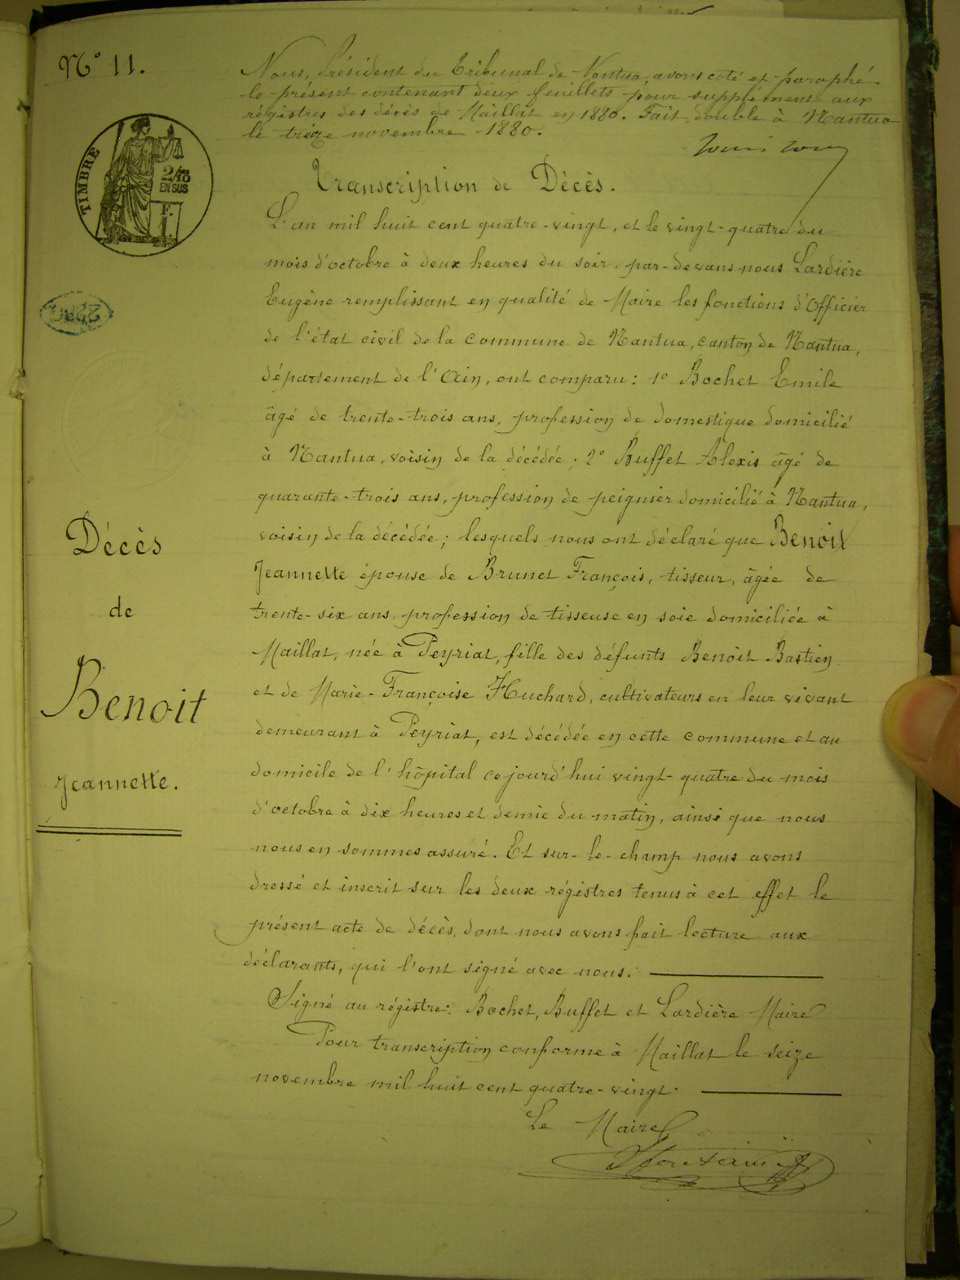 N° 11.
Nous, Président du Tribunal de Nantua, avons coté et paraphé
le présent contenant deux feuillets pour supplément aux
régistres des décès de Maillat en 1880. Fait double à Nantua
le treize novembre 1880.
TIMBRE
2/10
EN SUS
Transcription de Décès.
L'an mil huit cent quatre-vingt, et le vingt-quatre du
mois d'octobre à deux heures du soir, par-devans nous Lardière
Eugène remplissant en qualité de Maire les fonctions d'Officier
de l'état civil de la commune de Nantua, canton de Nantua,
département de l'Ain, ont comparu : 1° Bochet Emile
âgé de trente-trois ans, profession de domestique domicilié
à Nantua, voisin de la décédée ; 2° Buffet Alexis âgé de
quarante-trois ans, profession de peignier domicilié à Nantua,
voisin de la décédée ; lesquels nous ont déclaré que Benoit
Jeannette épouse de Brunet François, tisseur, âgée de
trente-six ans, profession de tisseuse en soie domiciliée à
Maillat, née à Peyriat, fille des défunts Benoit Bastien
et de Marie-Françoise Huchard, cultivateurs en leur vivant
demeurant à Peyriat, est décédée en cette commune et au
domicile de l'hôpital ce jourd'hui vingt-quatre du mois
d'octobre à dix heures et demie du matin, ainsi que nous
nous en sommes assuré. Et sur-le-champ nous avons
dressé et inscrit sur les deux régistres tenus à cet effet le
présent acte de décès, dont nous avons fait lecture aux
déclarants, qui l'ont signé avec nous.
Signé au régistre : Bochet, Buffet et Lardière Maire
Pour transcription conforme à Maillat le seize
novembre mil huit cent quatre-vingt.
Le Maire
Décès
de
Benoit
Jeannette.